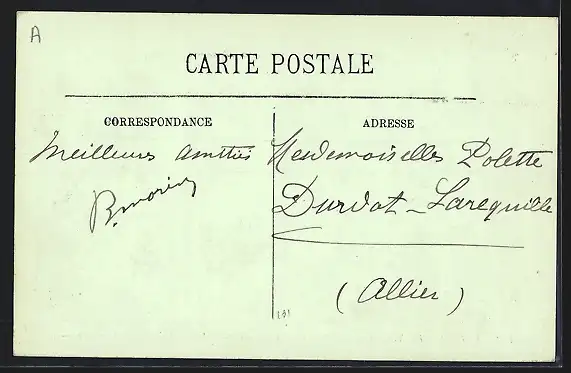 A
CARTE POSTALE
CORRESPONDANCE
ADRESSE
Meilleures amitiés
R. Morin
Mesdemoiselles Polette
Durdat-Larequille
(Allier)
131